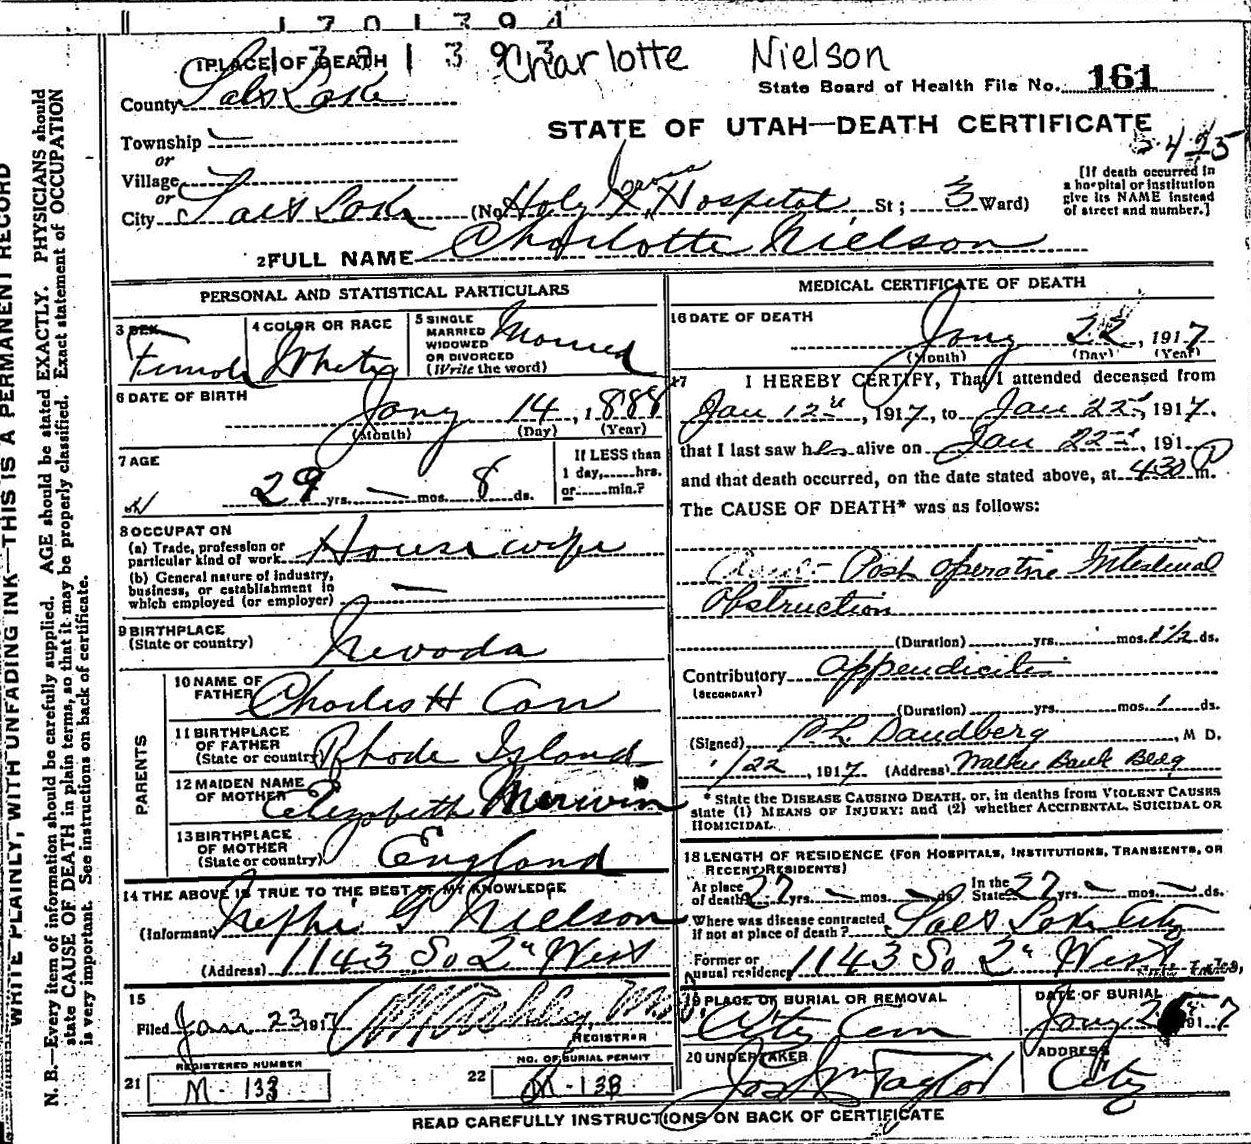 1701394
1 PLACE OF DEATH 1 3 9 3 Charlotte Nielson
State Board of Health File No. 161
County Salt Lake
STATE OF UTAH—DEATH CERTIFICATE
Township —
or
Village
or
City Salt Lake (No Holy Cross Hospital, St; 3 Ward)
[If death occurred in
a hospital or institution
give its NAME instead
of street and number.]
2 FULL NAME Charlotte Nielson
PERSONAL AND STATISTICAL PARTICULARS
3 SEX Female
4 COLOR OR RACE White
5 SINGLE
MARRIED
WIDOWED
OR DIVORCED
(Write the word)
Married
6 DATE OF BIRTH
Jany 14, 1888
(Month) (Day) (Year)
7 AGE
29 yrs. — mos. 8 ds.
If LESS than
1 day, hrs.
or min.?
8 OCCUPATION
(a) Trade, profession or
particular kind of work Housewife
(b) General nature of industry,
business, or establishment in
which employed (or employer) —
9 BIRTHPLACE
(State or country) Nevada
PARENTS
10 NAME OF
FATHER Charles H
11 BIRTHPLACE
OF FATHER
(State or country) Rhode Island
12 MAIDEN NAME
OF MOTHER Elizabeth Merwin
13 BIRTHPLACE
OF MOTHER
(State or country) England
14 THE ABOVE IS TRUE TO THE BEST OF MY KNOWLEDGE
(Informant Nephi G Nielson
(Address) 1143 So 2" West
15
Filed Jan 23 1917
REGISTRAR
REGISTERED NUMBER
21 M-133
NO. OF BURIAL PERMIT
22 M-133
MEDICAL CERTIFICATE OF DEATH
16 DATE OF DEATH
Jany 22, 1917
(Month) (Day) (Year)
17 I HEREBY CERTIFY, That I attended deceased from
Jan 12th, 1917, to Jan 22nd, 1917.
that I last saw her alive on Jan 22nd, 191
and that death occurred, on the date stated above, at 430 P m.
The CAUSE OF DEATH* was as follows:
Post operative Intestinal
Obstruction
(Duration) yrs. mos. 1 1/2 ds.
Contributory appendicitis
(SECONDARY)
(Duration) yrs. mos. 1 ds.
(Signed) Daudberg, M D.
1/22, 1917 (Address) Walker Bank Bldg
* State the DISEASE CAUSING DEATH, or, in deaths from VIOLENT CAUSES
state (1) MEANS OF INJURY; and (2) whether ACCIDENTAL, SUICIDAL OR
HOMICIDAL.
18 LENGTH OF RESIDENCE (FOR HOSPITALS, INSTITUTIONS, TRANSIENTS, OR
RECENT RESIDENTS)
At place
of death 27 yrs. — mos. — ds. In the
State 27 yrs. — mos. — ds.
Where was disease contracted
If not at place of death? Salt Lake City
Former or
usual residence 1143 So 2" West
19 PLACE OF BURIAL OR REMOVAL
City Cem
DATE OF BURIAL
Jany 1917
20 UNDERTAKER
Jos Wm Taylor
ADDRESS
City
READ CAREFULLY INSTRUCTIONS ON BACK OF CERTIFICATE
WRITE PLAINLY, WITH UNFADING INK—THIS IS A PERMANENT RECORD
N. B.—Every item of information should be carefully supplied. AGE should be stated EXACTLY. PHYSICIANS should
state CAUSE OF DEATH in plain terms, so that it may be properly classified. Exact statement of OCCUPATION
is very important. See instructions on back of certificate.